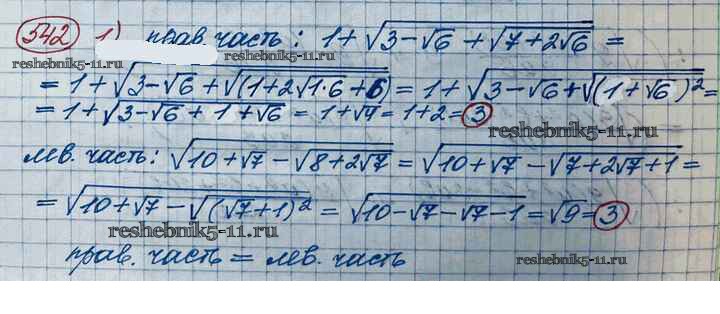 542 1) прав часть: 1+√(3-√6+√(7+2√6)) =
reshebnik5-11.ru
reshebnik5-11.ru
= 1+√(3-√6+√(1+2√1·6+6)) = 1+√(3-√6+√(1+√6)²) =
= 1+√(3-√6+1+√6) = 1+√4 = 1+2 = 3
reshebnik5-11.ru
лев. часть: √(10+√7-√(8+2√7)) = √(10+√7-√(7+2√7+1)) =
= √(10+√7-√(√7+1)²) = √(10-√7-√7-1) = √9 = 3
reshebnik5-11.ru
прав. часть = лев. часть
reshebnik5-11.ru